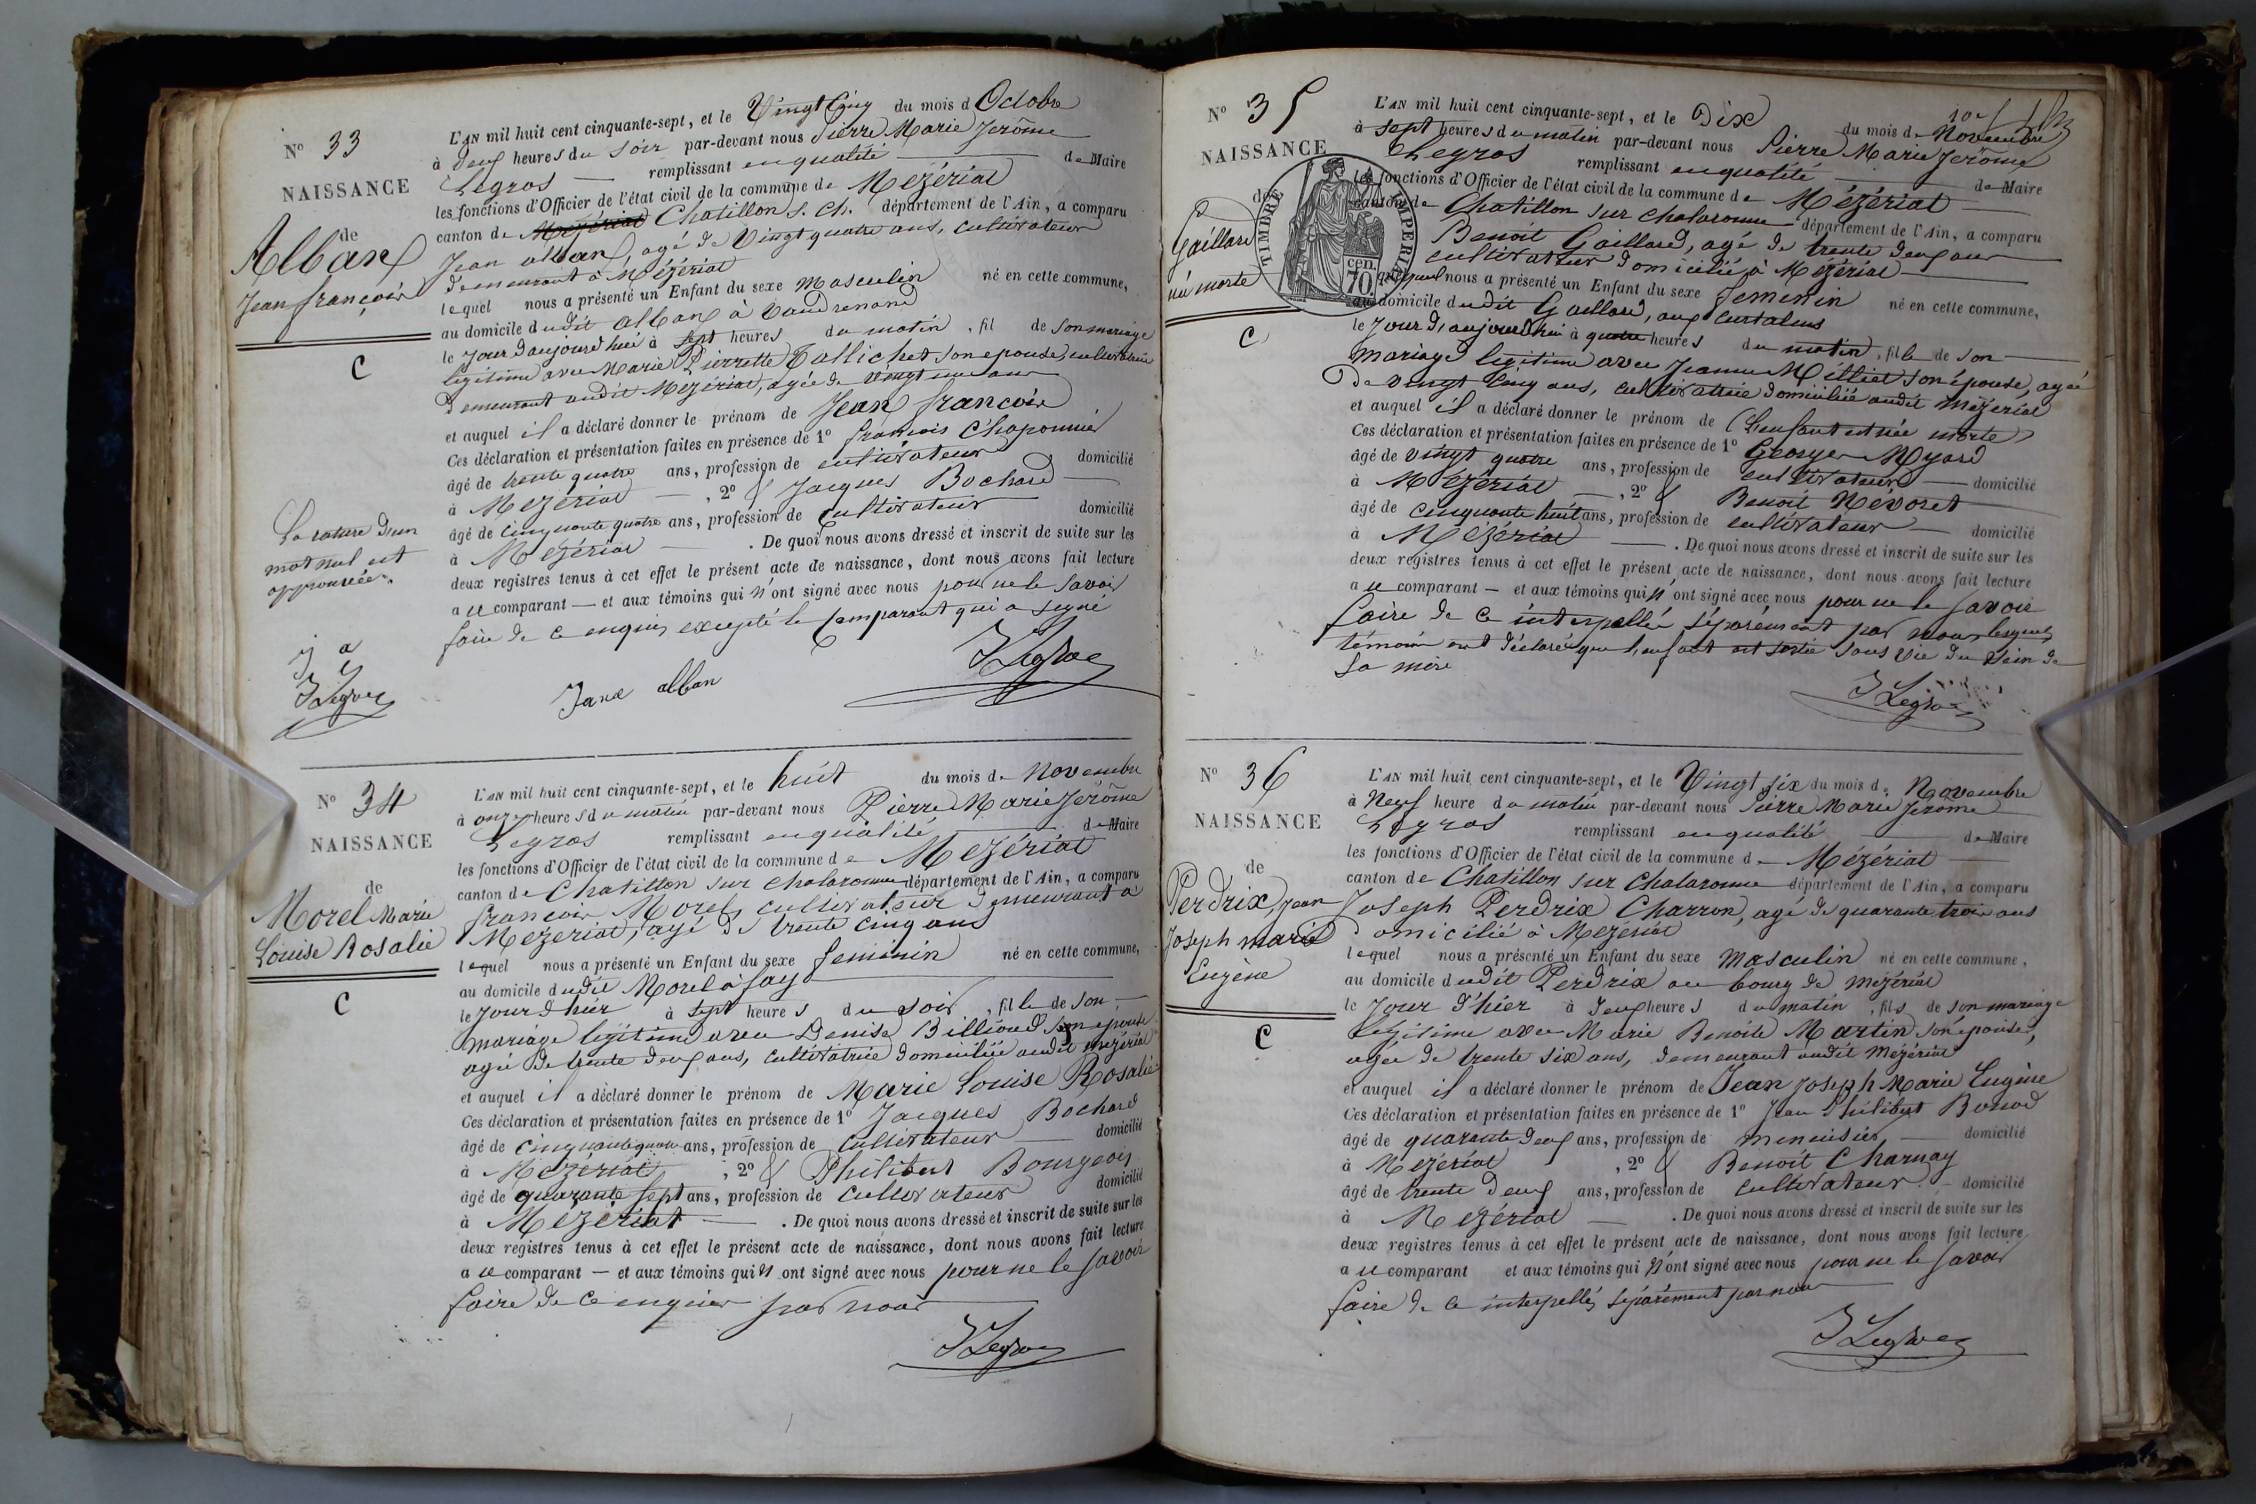 N° 33
NAISSANCE
de
Alban
Jean françois
C
L'AN mil huit cent cinquante-sept, et le Vingt Cinq du mois d Octobre
à deux heures du soir par-devant nous Pierre Marie Jerôme
Legros remplissant en qualité de Maire
les fonctions d'Officier de l'état civil de la commune de Mézériat
canton de Mézériat Chatillon s. Ch. département de l'Ain, a comparu
Jean alban, agé de Vingt quatre ans, cultivateur
demeurant à Mézériat
lequel nous a présenté un Enfant du sexe Masculin né en cette commune,
au domicile dudit alban à
le Jour daujourdhui à sept heures du matin, fil de son mariage
legitime avec Marie Pierrette Tallichet son epouse, cultivatrice
demeurant audit Mezériat, agée de vingt
et auquel il a déclaré donner le prénom de Jean françois
Ces déclaration et présentation faites en présence de 1° françois Chaponnier
âgé de trente quatre ans, profession de cultivateur domicilié
à Mézériat, 2° & Jacques Bochard
âgé de cinquante quatre ans, profession de Cultivateur domicilié
à Mézériat. De quoi nous avons dressé et inscrit de suite sur les
deux registres tenus à cet effet le présent acte de naissance, dont nous avons fait lecture
a u comparant — et aux témoins qui n'ont signé avec nous pour ne le savoir
faire de ce enquis, excepté le Comparant qui a signé
La rature d'un
mot nul est
approuvée.
J a
Legros
alban
Legros
N° 34
NAISSANCE
de
Morel Marie
Louise Rosalie
C
L'AN mil huit cent cinquante-sept, et le huit du mois de Novembre
à onze heures du matin par-devant nous Pierre Marie Jérôme
Legros remplissant en qualité de Maire
les fonctions d'Officier de l'état civil de la commune de Mézériat
canton de Chatillon sur Chalaronne département de l'Ain, a comparu
françois Morel, cultivateur demeurant à
Mezeriat, agé de trente cinq ans
lequel nous a présenté un Enfant du sexe feminin né en cette commune,
au domicile dudit Morel à fay
le Jour d hier à sept heures du soir, fil le de son
mariage legitime avec Denise Billioud son épouse
agée de trente deux ans, cultivatrice domiciliée audit mezériat
et auquel il a déclaré donner le prénom de Marie Louise Rosalie
Ces déclaration et présentation faites en présence de 1° Jacques Bochard
âgé de cinquante quatre ans, profession de Cultivateur domicilié
à Mézériat, 2° & Philibert Bourgeois
âgé de quarante sept ans, profession de cultivateur domicilié
à Mézériat. De quoi nous avons dressé et inscrit de suite sur les
deux registres tenus à cet effet le présent acte de naissance, dont nous avons fait lecture
a u comparant — et aux témoins qui n'ont signé avec nous pour ne le savoir
faire de ce enquis par nous
Legros
N° 35
NAISSANCE
de
Gaillard
né morte
C
TIMBRE IMPERIAL
70 cen.
L'AN mil huit cent cinquante-sept, et le Dix du mois de Novembre
à sept heures du matin par-devant nous Pierre Marie Jerôme
Legros remplissant en qualité de Maire
les fonctions d'Officier de l'état civil de la commune de Mézériat
canton de Chatillon sur chalaronne département de l'Ain, a comparu
Benoit Gaillard, agé de trente deux ans
cultivateur domicilié à Mézériat
lequel nous a présenté un Enfant du sexe feminin né en cette commune,
au domicile dudit Gaillard, aux Curtaleus
le Jour d, aujourdhui à quatre heures du matin, fil le de son
mariage legitime avec Jeanne Milliet son épouse, agée
de vingt cinq ans, cultivatrice domiciliée audit Mézériat
et auquel il a déclaré donner le prénom de (L'enfant est née morte)
Ces déclaration et présentation faites en présence de 1° George Myard
âgé de vingt quatre ans, profession de cultivateur domicilié
à Mézériat, 2° & Benoit Névoret
âgé de cinquante huit ans, profession de cultivateur domicilié
à Mézériat. De quoi nous avons dressé et inscrit de suite sur les
deux registres tenus à cet effet le présent acte de naissance, dont nous avons fait lecture
a u comparant — et aux témoins qui n'ont signé avec nous pour ne le savoir
faire de ce interpellé séparément par nous, lesquels
témoin ont déclaré que l'enfant est sortie sans vie du sein de
sa mère
Legros
N° 36
NAISSANCE
de
Perdrix, Jean
Joseph marie
Eugène
C
L'AN mil huit cent cinquante-sept, et le Vingt six du mois de Novembre
à Neuf heure du matin par-devant nous Pierre Marie Jerome
Legros remplissant en qualité de Maire
les fonctions d'Officier de l'état civil de la commune de Mézériat
canton de Chatillon sur Chalaronne département de l'Ain, a comparu
Joseph Perdrix Charron, agé de quarante trois ans
domicilié à Mezériat
lequel nous a présenté un Enfant du sexe Masculin né en cette commune,
au domicile dudit Perdrix au bourg de Mezériat
le Jour d'hier à deux heures du matin, fils de son mariage
légitime avec Marie Benoite Martin son épouse,
agée de trente six ans, demeurant audit Mézériat
et auquel il a déclaré donner le prénom de Jean Joseph Marie Eugène
Ces déclaration et présentation faites en présence de 1° Jean Philibert Bonod
âgé de quarante deux ans, profession de menuisier domicilié
à Mezériat, 2° & Benoit Charnay
âgé de trente deux ans, profession de cultivateur domicilié
à Mezériat. De quoi nous avons dressé et inscrit de suite sur les
deux registres tenus à cet effet le présent acte de naissance, dont nous avons fait lecture
a u comparant et aux témoins qui n'ont signé avec nous pour ne le savoir
faire de ce interpellés séparément par nous
Legros